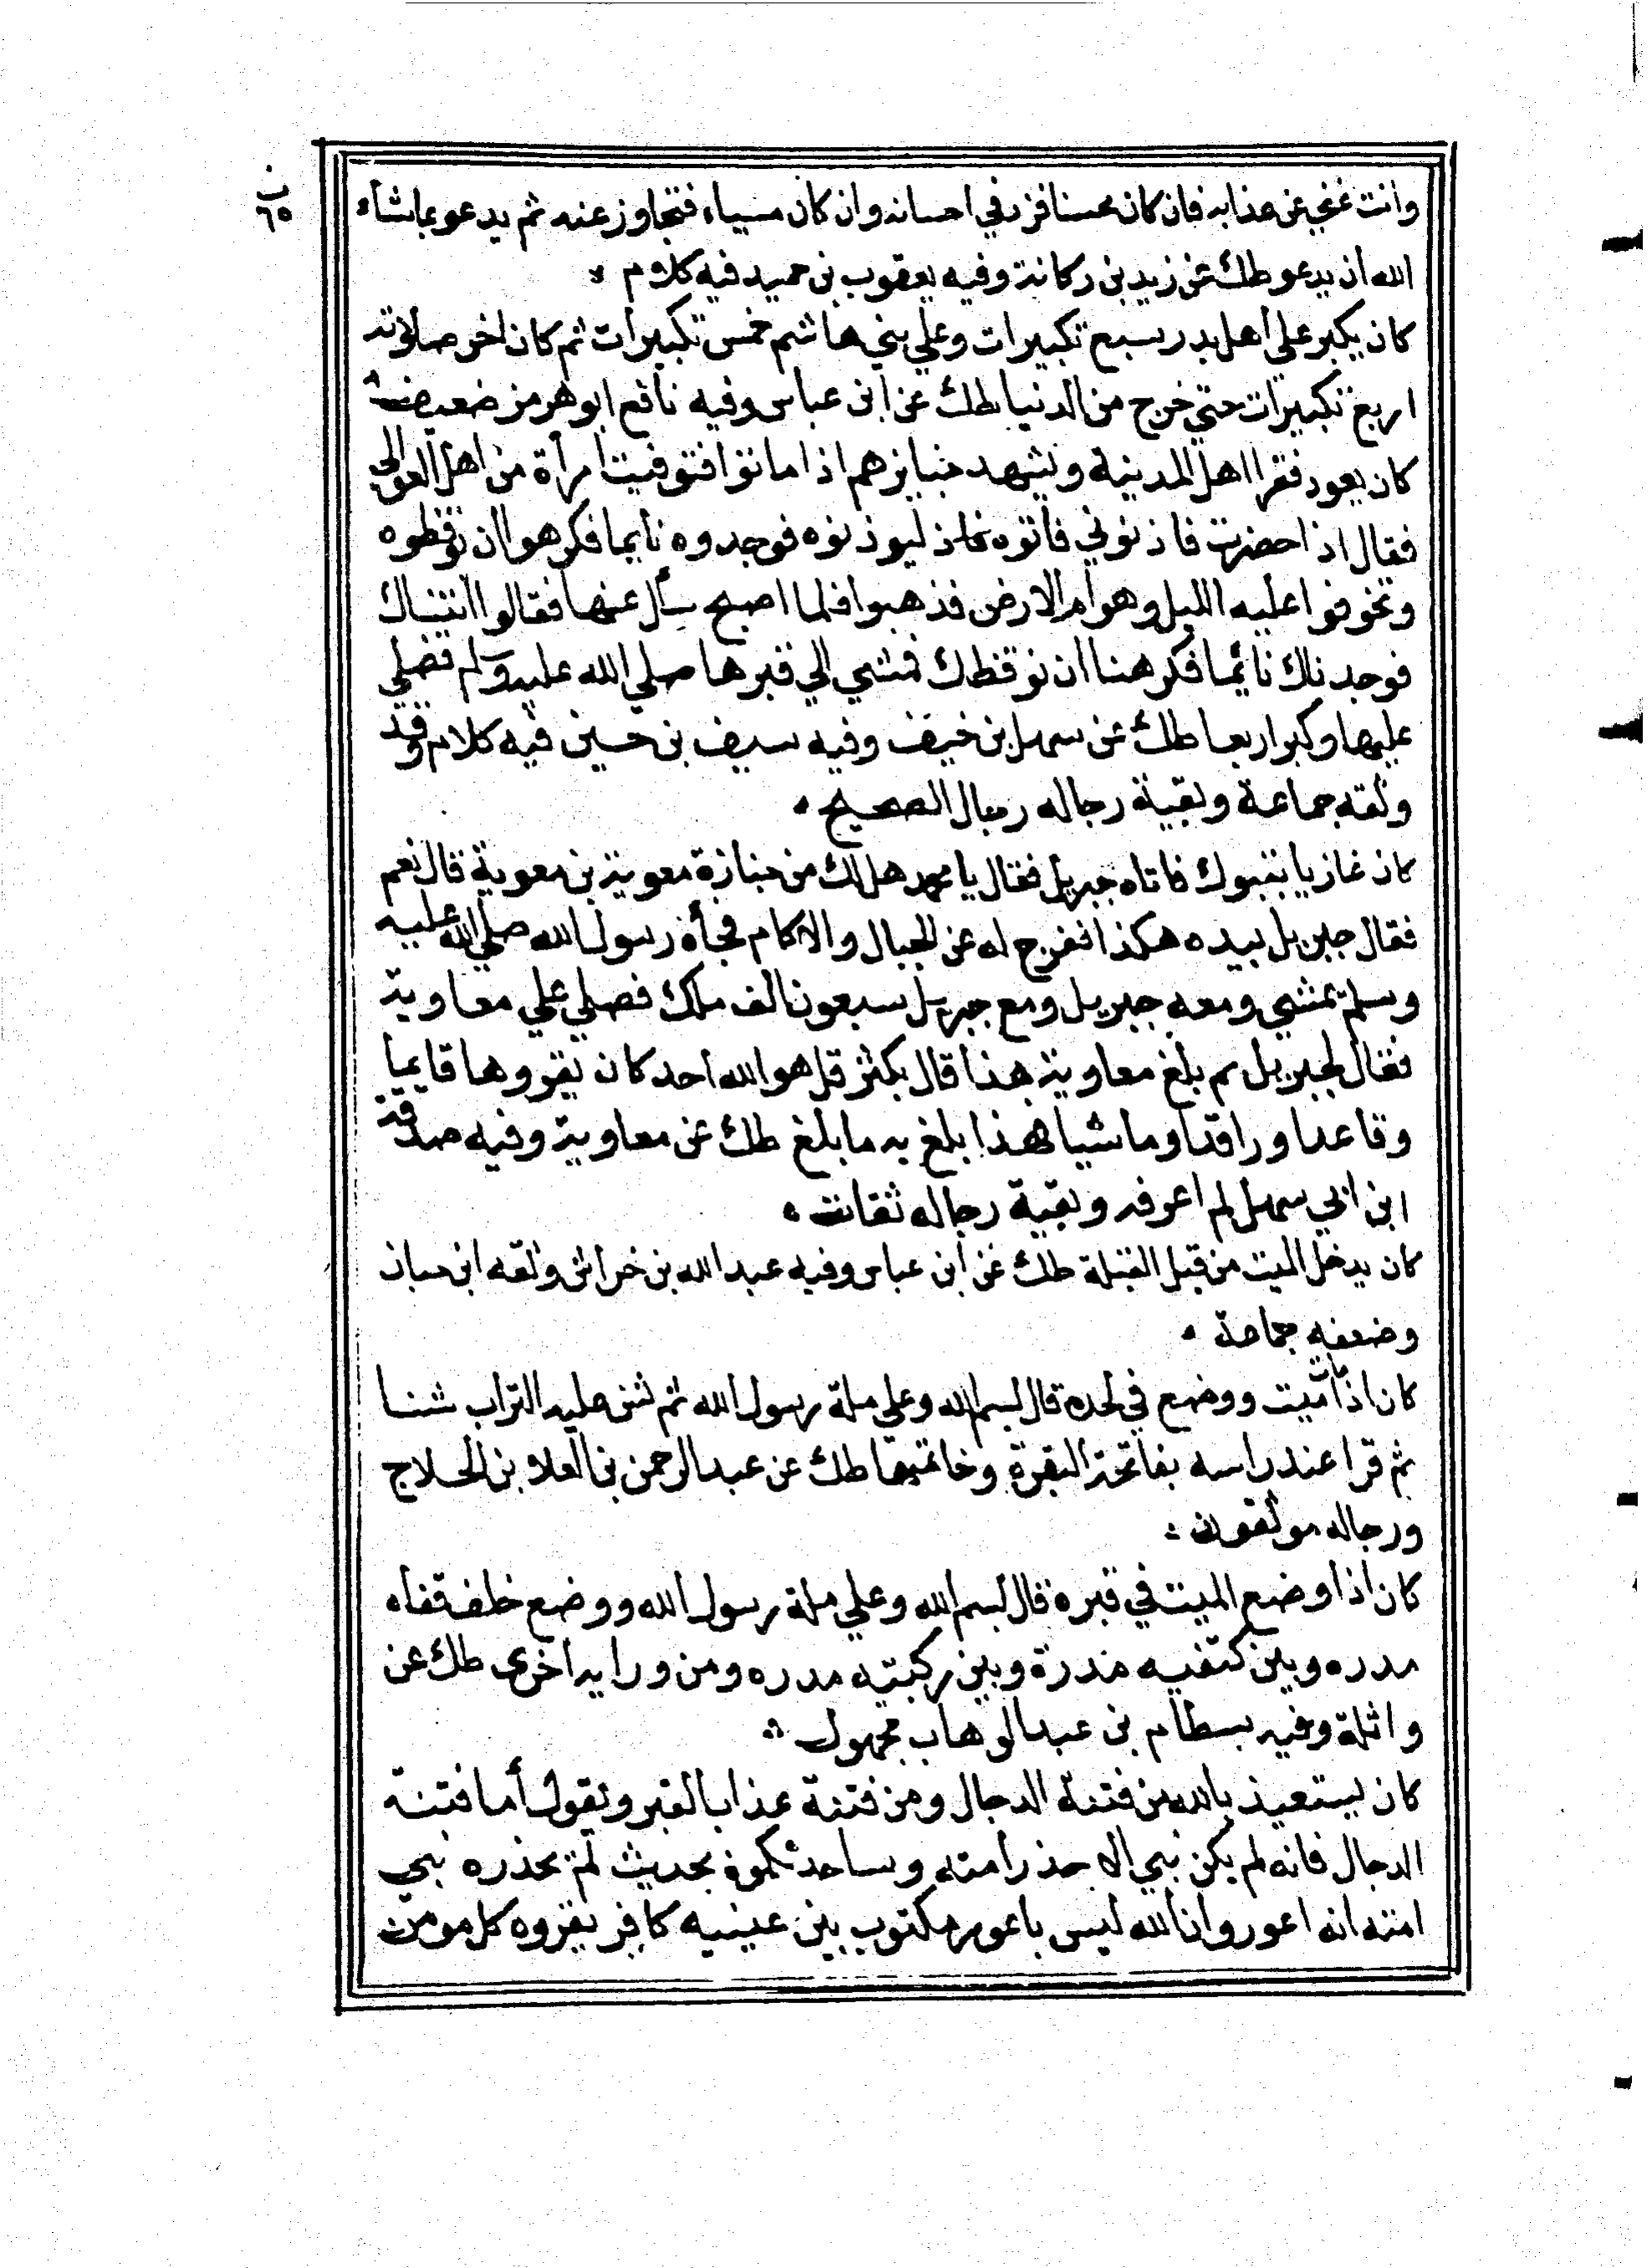 وانت غني عن عذابه فان كان محسنا فزد في احسانه وان كان مسياء فتجاوز عنه ثم يدعو بما شاء
الله ان يدعو طك عن زيد بن ركانة وفيه يعقوب بن حميد فيه كلام
كان يكبر على اهل بدر سبع تكبيرات وعلي بني هاشم خمس تكبيرات ثم كان اخر صلاوته
اربع تكبيرات حتي خرج من الدنيا طك عن ابن عباس وفيه نافع ابو هرمز ضعيف
كان يعود فقرا اهل المدينة ويشهد جنايزهم اذا ماتوا فتوفيت امرأة من اهل العوالي
فقال اذا حضرت فاذنوني فاتوه ليوذنوه فوجدوه نايما فكرهوا ان يوقظوه
وتخوفوا عليه الليل وهوام الارض فذهبوا فلما اصبح سأل عنها فقالوا اتيناك
فوجدناك نائما فكرهنا ان نوقظك فمشي الي قبرها صلي الله عليه وسلم فصلي
عليها وكبر اربعا طك عن سهل بن حنيف وفيه سيف بن حسين فيه كلام وقد
وثقه جماعة وبقية رجاله رجال الصحيح
كان غازيا بتبوك فاتاه جبريل فقال يا محمد هل لك من جنازة معوية بن معوية قال نعم
فقال جبريل بيده هكذا انفرج له عن الجبال والاكام فجأة رسول الله صلي الله عليه
وسلم يمشي ومعه جبريل ومع جبريل سبعون الف ملك فصلي علي معاوية
فقال لجبريل بم بلغ معاوية هذا قال بكثر قل هو الله احد كان يقروها قايما
وقاعدا وراقدا وماشيا فهذا بلغ به ما بلغ طك عن معاوية وفيه صدقة
ابن ابي سهل لم اعرفه وبقية رجاله ثقات
كان يدخل الميت من قبل القبلة طك عن ابن عباس وفيه عبد الله بن خراش وثقه ابن حبان
وضعفه جماعة
كان اذا مات ميت ووضع في لحده قال بسم الله وعلي ملة رسول الله ثم شن عليه التراب شنا
ثم قرا عند راسه بفاتحة البقرة وخاتمتها طك عن عبد الرحمن بن العلا بن الحلاج
ورجاله موثقون
كان اذا وضع الميت في قبره قال بسم الله وعلي ملة رسول الله ووضع خلف قفاه
مدره وبين كتفيه مدرة وبين ركبتيه مدره ومن ورايه اخرى طك عن
واثلة وفيه بسطام بن عبد الوهاب مجهول
كان يستعيذ بالله من فتنة الدجال ومن فتنة عذاب القبر ويقول أما فتنة
الدجال فانه لم يكن نبي الا حذر امته وساحدثكموه بحديث لم يحذره نبي
امته انه اعور وان الله ليس باعور مكتوب بين عينيه كافر يقروه كل مومن